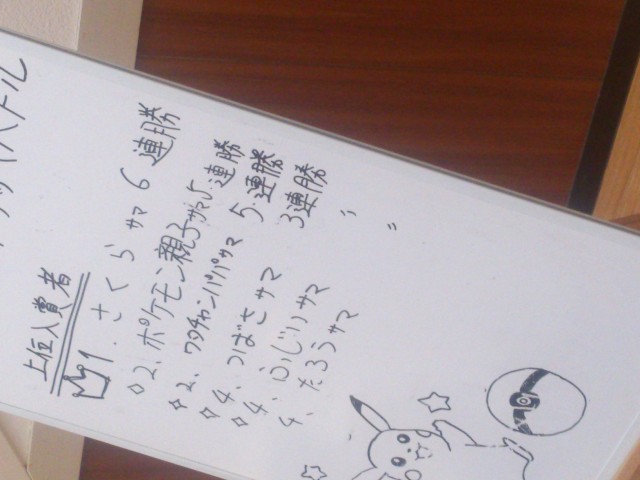 バトル
上位入賞者
1. さくら サマ 6 連勝
2、ポケモン親子サマ 5 連勝
2、ワタチャンパパサマ 5.連勝
4、つばさサマ 3連勝
4、ふじりサマ 〃
4、たろうサマ 〃